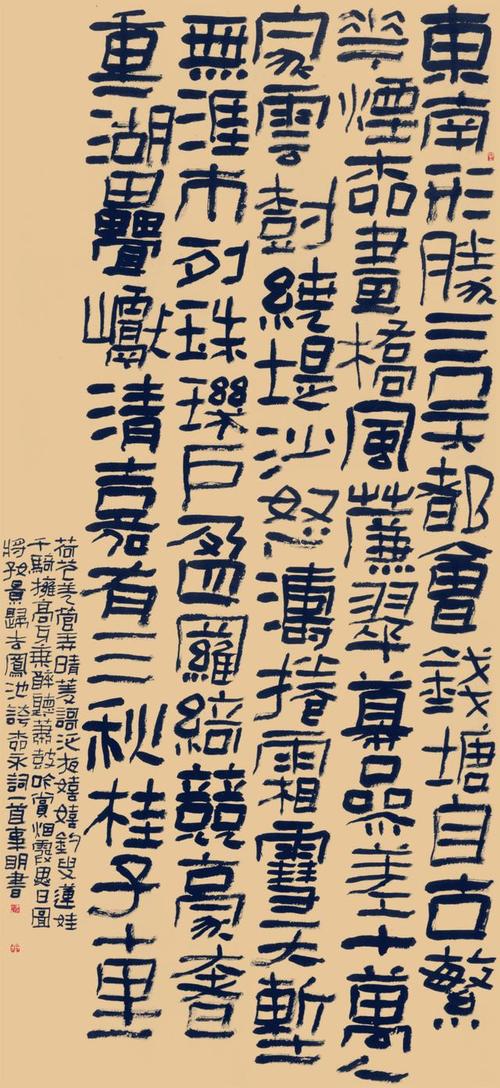 東南形勝三吴都會錢塘自古繁
華煙柳畫橋風簾翠幕參差十萬人
家雲樹繞堤沙怒濤捲霜雪天塹
無涯市列珠璣户盈羅綺競豪奢
重湖疊巘清嘉有三秋桂子十里
荷花羌管弄晴菱謌泛夜嬉嬉釣叟蓮娃
千騎擁高牙乘醉聽蕭鼓吟賞烟霞異日圖
將好景歸去鳳池誇柳永詞一首車明書